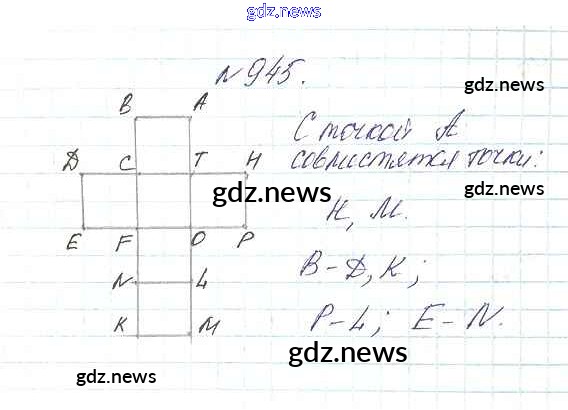 gdz.news
gdz.news
N 945.
gdz.news
B A
С точкой А
совместятся точки:
D C T H
gdz.news
gdz.news
H, M.
E F O P
B-D, K;
N L
P-L; E-N.
K M
gdz.news
gdz.news